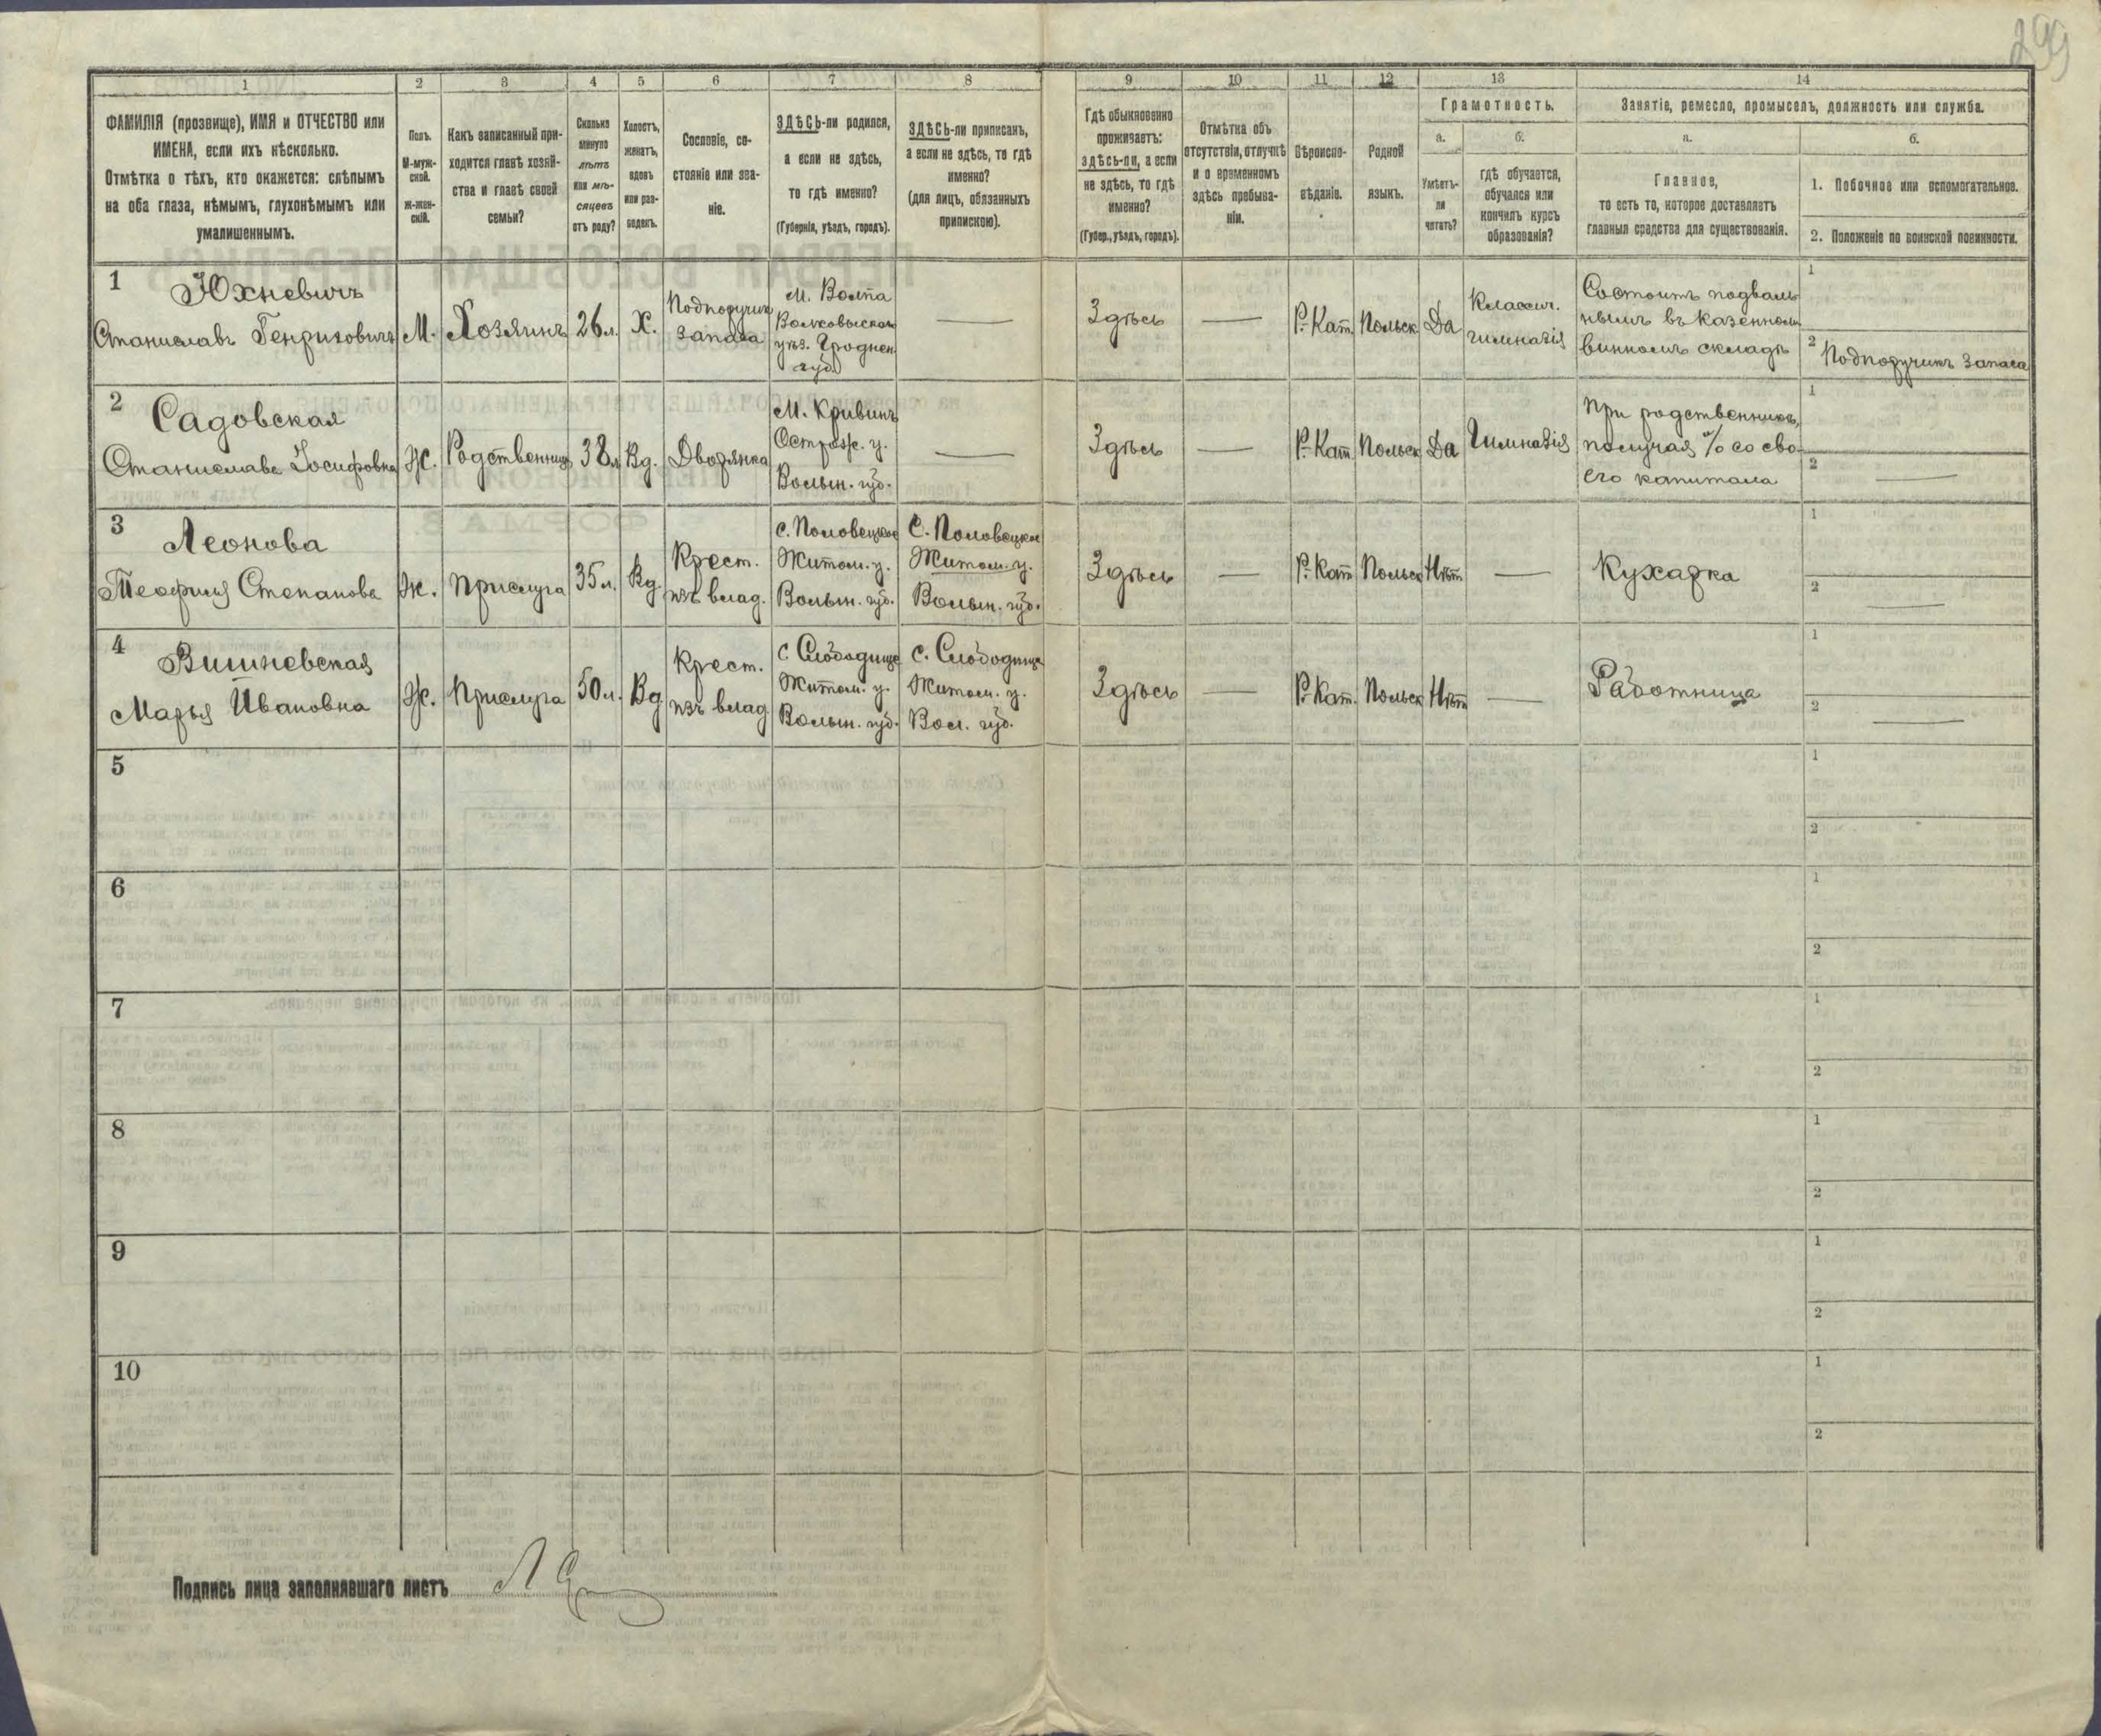 299
1 2 3 4 5 6 7 8 9 10 11 12 13 14
ФАМИЛІЯ (прозвище), ИМЯ и ОТЧЕСТВО или
ИМЕНА, если ихъ нѣсколько.
Отмѣтка о тѣхъ, кто окажется: слѣпымъ
на оба глаза, нѣмымъ, глухонѣмымъ или
умалишеннымъ.
Полъ.
М-муж-
ской.
ж-жен-
скій.
Какъ записанный при-
ходится главѣ хозяй-
ства и главѣ своей
семьи?
Сколько
минуло
лѣтъ
или мѣ-
сяцевъ
отъ роду?
Холостъ,
женатъ,
вдовъ
или раз-
веденъ.
Сословіе, со-
стояніе или зва-
ніе.
ЗДѢСЬ-ли родился,
а если не здѣсь,
то гдѣ именно?
(Губернія, уѣздъ, городъ).
ЗДѢСЬ-ли приписанъ,
а если не здѣсь, то гдѣ
именно?
(для лицъ, обязанныхъ
припискою).
Гдѣ обыкновенно
проживаетъ:
здѣсь-ли, а если
не здѣсь, то гдѣ
именно?
(Губер., уѣздъ, городъ).
Отмѣтка объ
отсутствіи, отлучкѣ
и о временномъ
здѣсь пребыва-
ніи.
Вѣроиспо-
вѣданіе.
Родной
языкъ.
Грамотность.
а.
Умѣетъ-
ли
читать?
б.
гдѣ обучается,
обучался или
кончилъ курсъ
образованія?
Занятіе, ремесло, промыселъ, должность или служба.
а.
Главное,
то есть то, которое доставляетъ
главныя средства для существованія.
б.
1. Побочное или вспомогательное.
2. Положеніе по воинской повинности.
1
Юхневичъ
Станиславъ Генриховичъ
М.
Хозяинъ
26 л.
Х.
Подпоручик
запаса
М. Волпа
Волковыскаго
уѣз. Гроднен.
губ.
—
Здѣсь
—
Р.-Кат.
Польск.
Да
Классич.
гимназія
Состоитъ подваль-
нымъ въ казенномъ
винномъ складѣ
1
2 Подпоручикъ запаса
2
Садовская
Станислава Іосифовна
Ж.
Родственница
38 л.
Вд.
Дворянка
М. Кривинъ
Острож. у.
Волын. губ.
—
Здѣсь
—
Р.-Кат.
Польск.
Да
Гимназія
При родственникѣ,
получая % со сво-
его капитала
1
2 —
3
Леонова
Теофиля Степанова
Ж.
Прислуга
35 л.
Вд.
Крест.
изъ влад.
с. Половецкое
Житом. у.
Волын. губ.
С. Половецкое
Житом. у.
Волын. губ.
Здѣсь
—
Р.-Кат.
Польск.
Нѣт
—
Кухарка
1
2 —
4
Вишневская
Марья Ивановна
Ж.
Прислуга
50 л.
Вд.
Крест.
изъ влад.
с. Слободище
Житом. у.
Волын. губ.
с. Слободище
Житом. у.
Вол. губ.
Здѣсь
—
Р.-Кат.
Польск.
Нѣт
—
Работница
1
2 —
5
1
2
6
1
2
7
1
2
8
1
2
9
1
2
10
1
2
Подпись лица заполнявшаго листъ